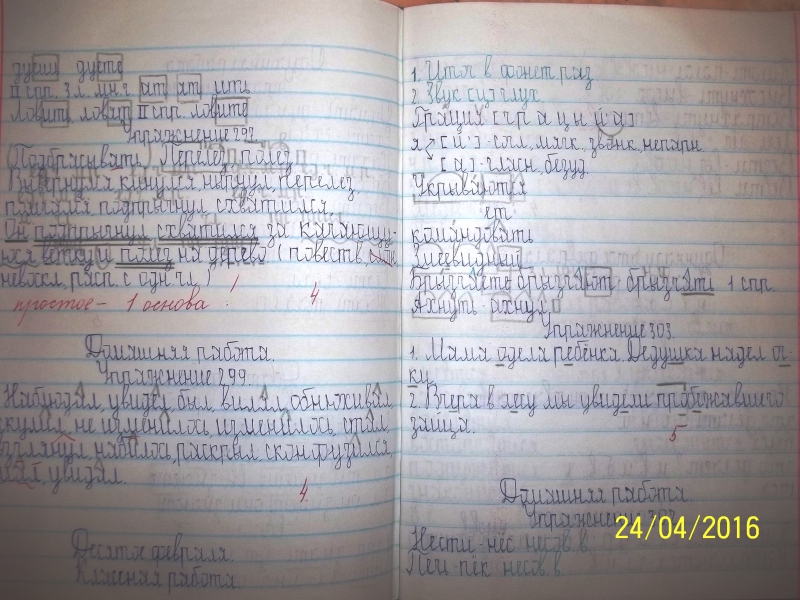 дуеш дуете
II спр. 3 л. мн.ч ат ят ить
Ловить, ловят II спр. ловите
Упражнение 297.
(Подбрасывать) Перелез, полез
Вывернулся, кинулся, нырнул, перелез
помчался, подпрыгнул, схватился.
Он подпрыгнул схватился за качающу-
юся ветку и полез на дерево (повеств.
невоскл, расп. с одн. чл.)
простое - 1 основа !
4
Домашняя работа.
Упражнение 299.
Наблюдал, увидел, был, вилял, обнюхивал,
скулил, не изменилось, изменилось, стал,
взглянул, раскрыл, сконфузился,
увидал.
4
Десятое февраля.
Классная работа.
1. Итог в фонет. раз
2. Звук [у] глух.
Грация [г р а ц и й а]
я [й] - согл, мяк., звонк, непарн
[а] - гласн, безуд.
Укрываются
ет
командовать
Змеевидный
Брызгаете брызгают брызгать 1 спр.
Ахнуть - ахнул
Упражнение 303.
1. Мама одела ребёнка. Дедушка надел оч-
ки.
2. Вчера в лесу мы увидели пробежавшего
зайца.
5
Домашняя работа.
Упражнение
Нести - нёс несов. в.
Печь - пёк несов. в.
24/04/2016